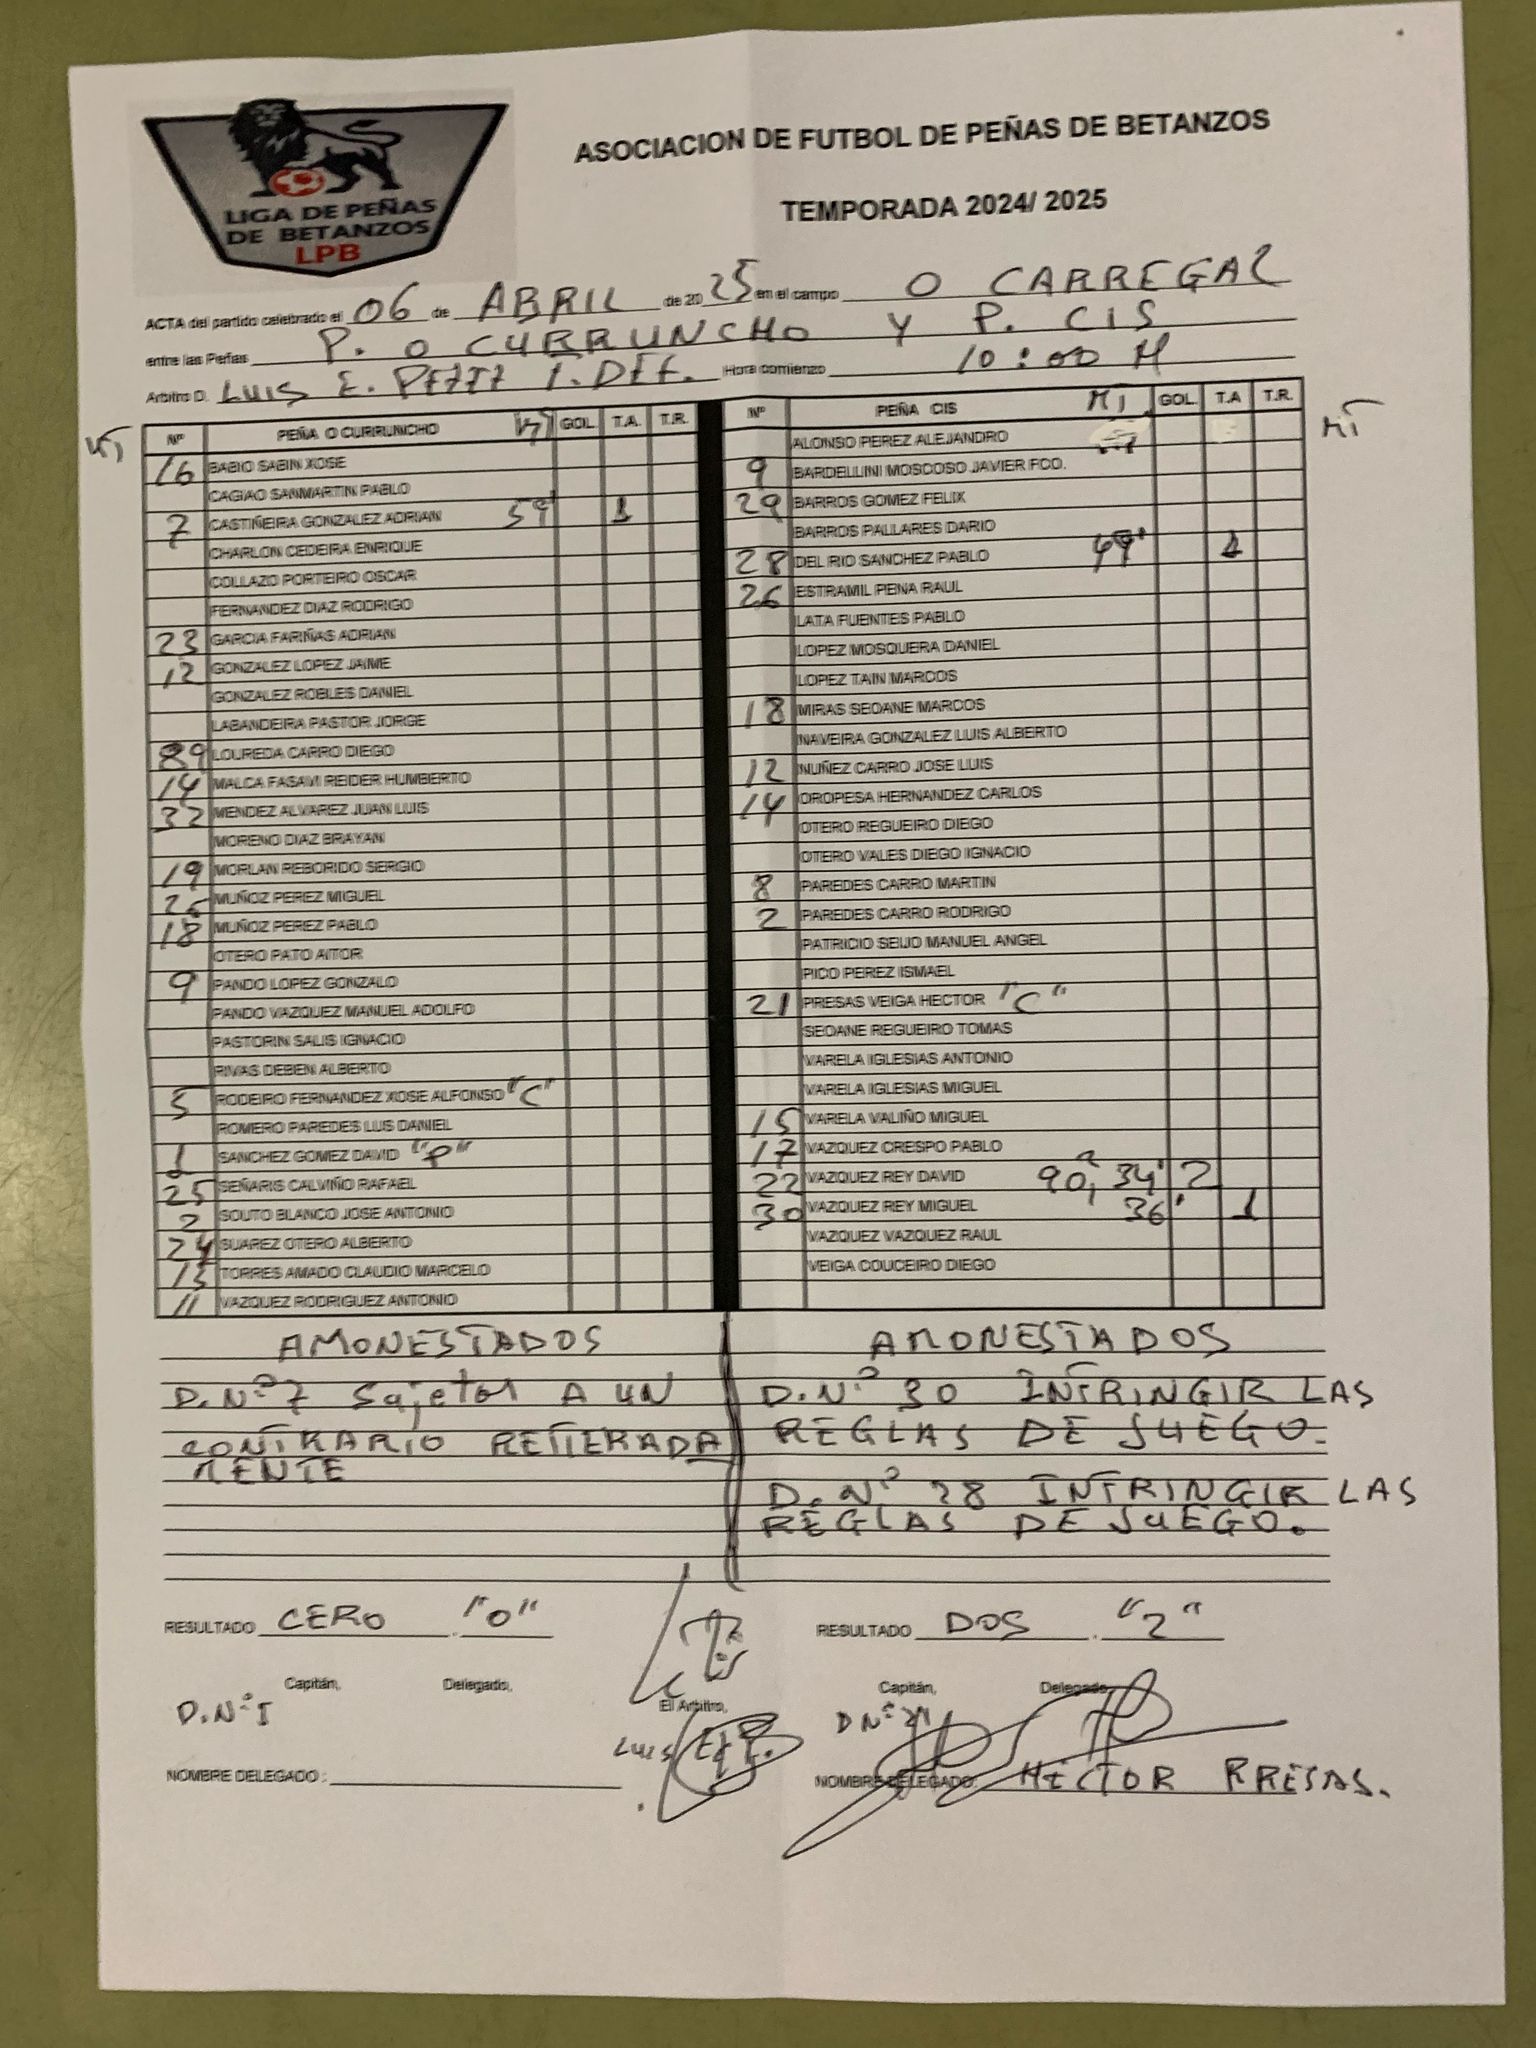 LIGA DE PEÑAS
DE BETANZOS
LPB
ASOCIACION DE FUTBOL DE PEÑAS DE BETANZOS
TEMPORADA 2024/ 2025
ACTA del partido celebrado el 06 de ABRIL de 2025 en el campo O CARREGAL
entre las Peñas P. O CURRUNCHO Y P. CIS
Arbitro D. LUIS E. Hora comienzo 10:00 H
Nº PEÑA O CURRUNCHO GOL. T.A. T.R.
16 BABIO SABIN XOSE
CAGIAO SANMARTIN PABLO
7 CASTIÑEIRA GONZALEZ ADRIAN 59' 1
CHARLON CEDEIRA ENRIQUE
COLLAZO PORTEIRO OSCAR
FERNANDEZ DIAZ RODRIGO
23 GARCIA FARIÑAS ADRIAN
12 GONZALEZ LOPEZ JAIME
GONZALEZ ROBLES DANIEL
LABANDEIRA PASTOR JORGE
89 LOUREDA CARRO DIEGO
14 MALCA FASAVI REIDER HUMBERTO
32 MENDEZ ALVAREZ JUAN LUIS
MORENO DIAZ BRAYAN
19 MORLAN REBORIDO SERGIO
MUÑOZ PEREZ MIGUEL
18 MUÑOZ PEREZ PABLO
OTERO PATO AITOR
9 PANDO LOPEZ GONZALO
PANDO VAZQUEZ MANUEL ADOLFO
PASTORIN SALIS IGNACIO
RIVAS DEBEN ALBERTO
5 RODEIRO FERNANDEZ XOSE ALFONSO "C"
ROMERO PAREDES LUIS DANIEL
1 SANCHEZ GOMEZ DAVID "P"
25 SEÑARIS CALVIÑO RAFAEL
2 SOUTO BLANCO JOSE ANTONIO
24 SUAREZ OTERO ALBERTO
15 TORRES AMADO CLAUDIO MARCELO
11 VAZQUEZ RODRIGUEZ ANTONIO
Nº PEÑA CIS GOL. T.A T.R.
ALONSO PEREZ ALEJANDRO
9 BARDELLINI MOSCOSO JAVIER FCO.
29 BARROS GOMEZ FELIX
BARROS PALLARES DARIO
28 DEL RIO SANCHEZ PABLO 49' 1
26 ESTRAMIL PENA RAUL
LATA FUENTES PABLO
LOPEZ MOSQUEIRA DANIEL
LOPEZ TAIN MARCOS
18 MIRAS SEOANE MARCOS
NAVEIRA GONZALEZ LUIS ALBERTO
12 NUÑEZ CARRO JOSE LUIS
14 OROPESA HERNANDEZ CARLOS
OTERO REGUEIRO DIEGO
OTERO VALES DIEGO IGNACIO
8 PAREDES CARRO MARTIN
2 PAREDES CARRO RODRIGO
PATRICIO SEIJO MANUEL ANGEL
PICO PEREZ ISMAEL
21 PRESAS VEIGA HECTOR "C"
SEOANE REGUEIRO TOMAS
VARELA IGLESIAS ANTONIO
VARELA IGLESIAS MIGUEL
15 VARELA VALIÑO MIGUEL
17 VAZQUEZ CRESPO PABLO
22 VAZQUEZ REY DAVID 90, 34' 2
30 VAZQUEZ REY MIGUEL 36' 1
VAZQUEZ VAZQUEZ RAUL
VEIGA COUCEIRO DIEGO
AMONESTADOS
D.Nº7 Sujetar A UN
CONTRARIO REITERADA
MENTE
AMONESTADOS
D.Nº 30 INFRINGIR LAS
REGLAS DE JUEGO.
D.Nº 28 INFRINGIR LAS
REGLAS DE JUEGO.
RESULTADO CERO "0"
RESULTADO DOS "2"
Capitán, Delegado,
D.Nº1
El Arbitro,
Luis
Capitán, Delegado,
D Nº 21
NOMBRE DELEGADO :
NOMBRE DELEGADO: HECTOR PRESAS.